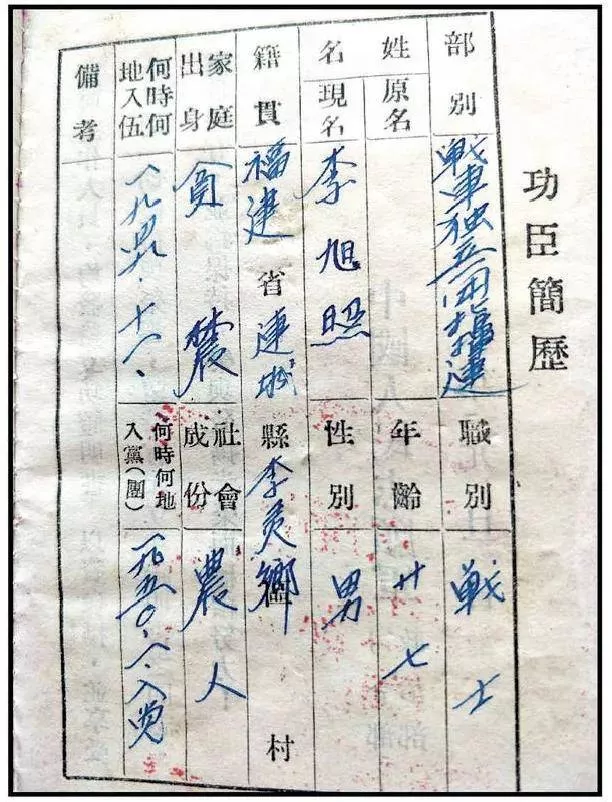 功臣簡歷
部別 戦車独立団 連
職別 戦士
姓名
原名
年齡 廿七
現名 李旭照
性別 男
籍貫 福建省連城縣李 鄉 村
家庭出身 貧農
社會成份 農人
何時何地入伍 一九四 .十一.
何時何地入黨(團) 一九五〇. .入党
備考